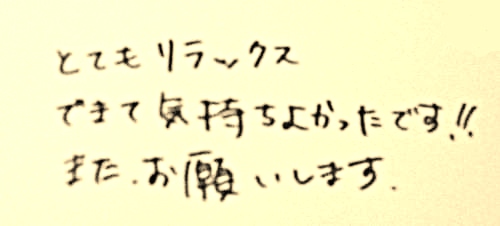 とてもリラックス
できて気持ちよかったです!!
また、お願いします.